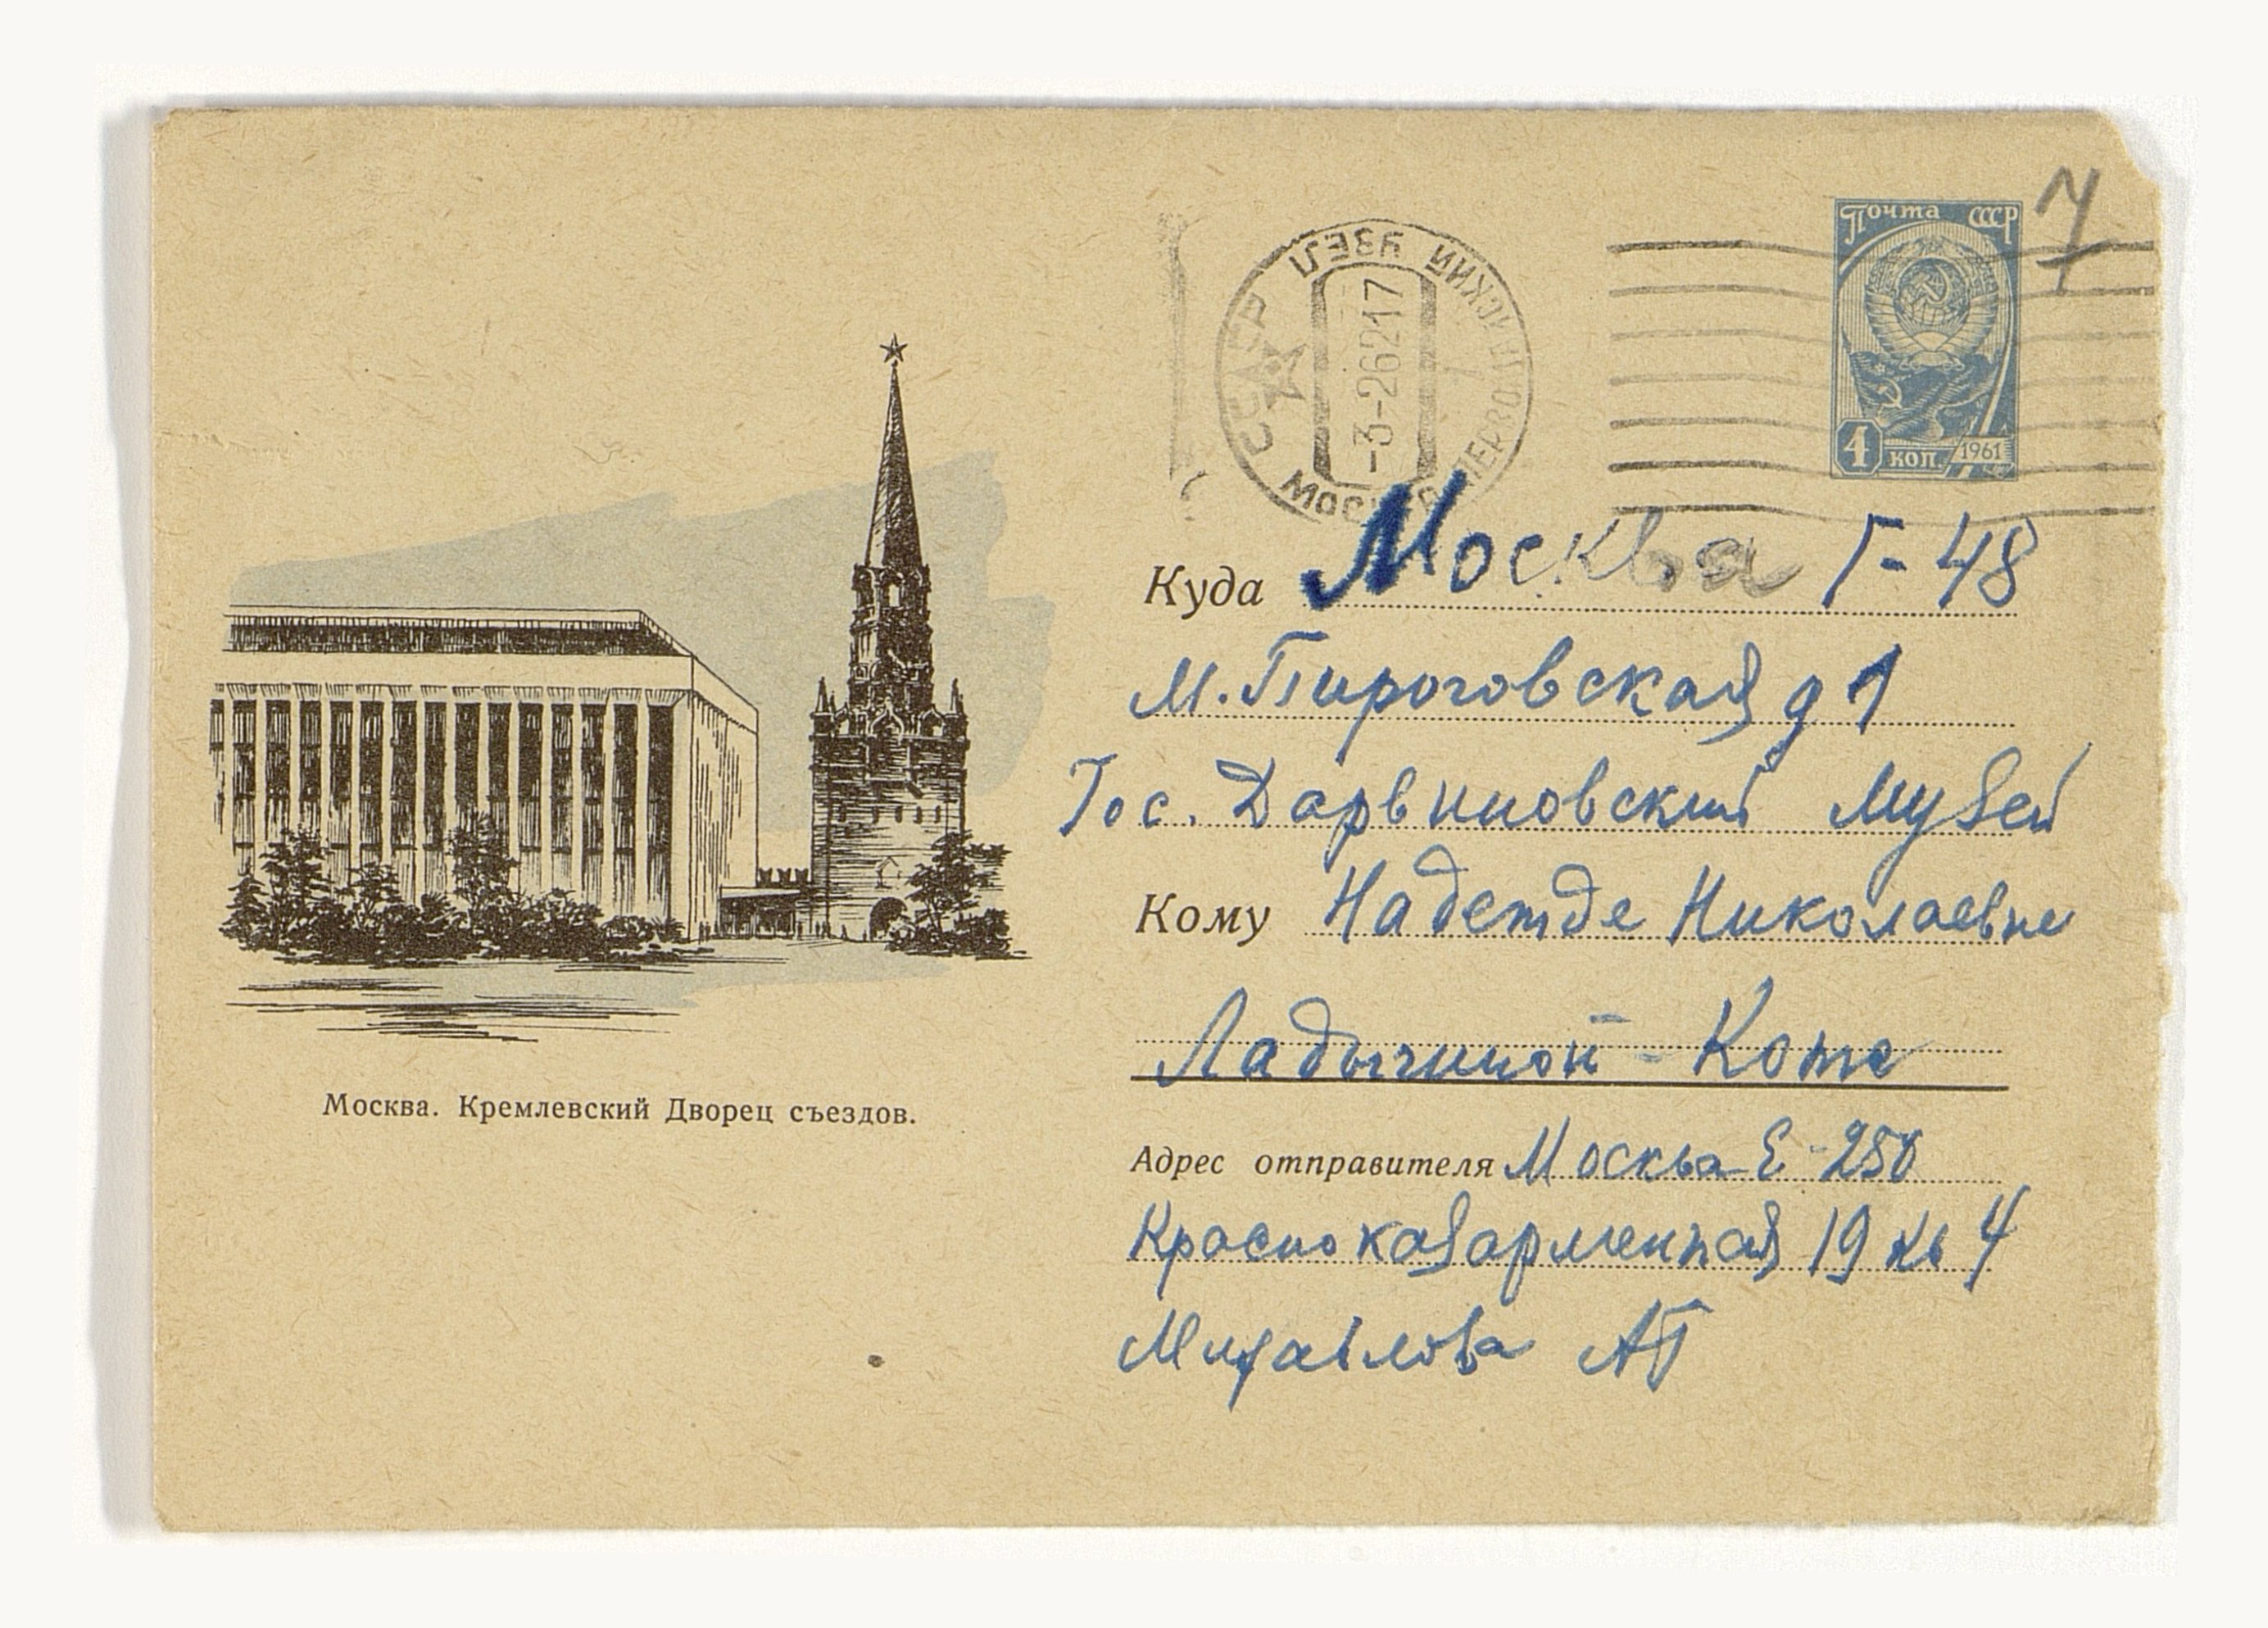 Почта СССР
7
4 коп. 1961
СССР МОСКВА УЗЕЛ
-3-26217
Куда Москва Г-48
М. Пироговская д 1
Гос. Дарвиновский Музей
Кому Надежде Николаевне
Ладыгиной-Котс
Москва. Кремлевский Дворец съездов.
Адрес отправителя Москва Е-250
Красноказарменная 19 кв 4
Михайлова АГ